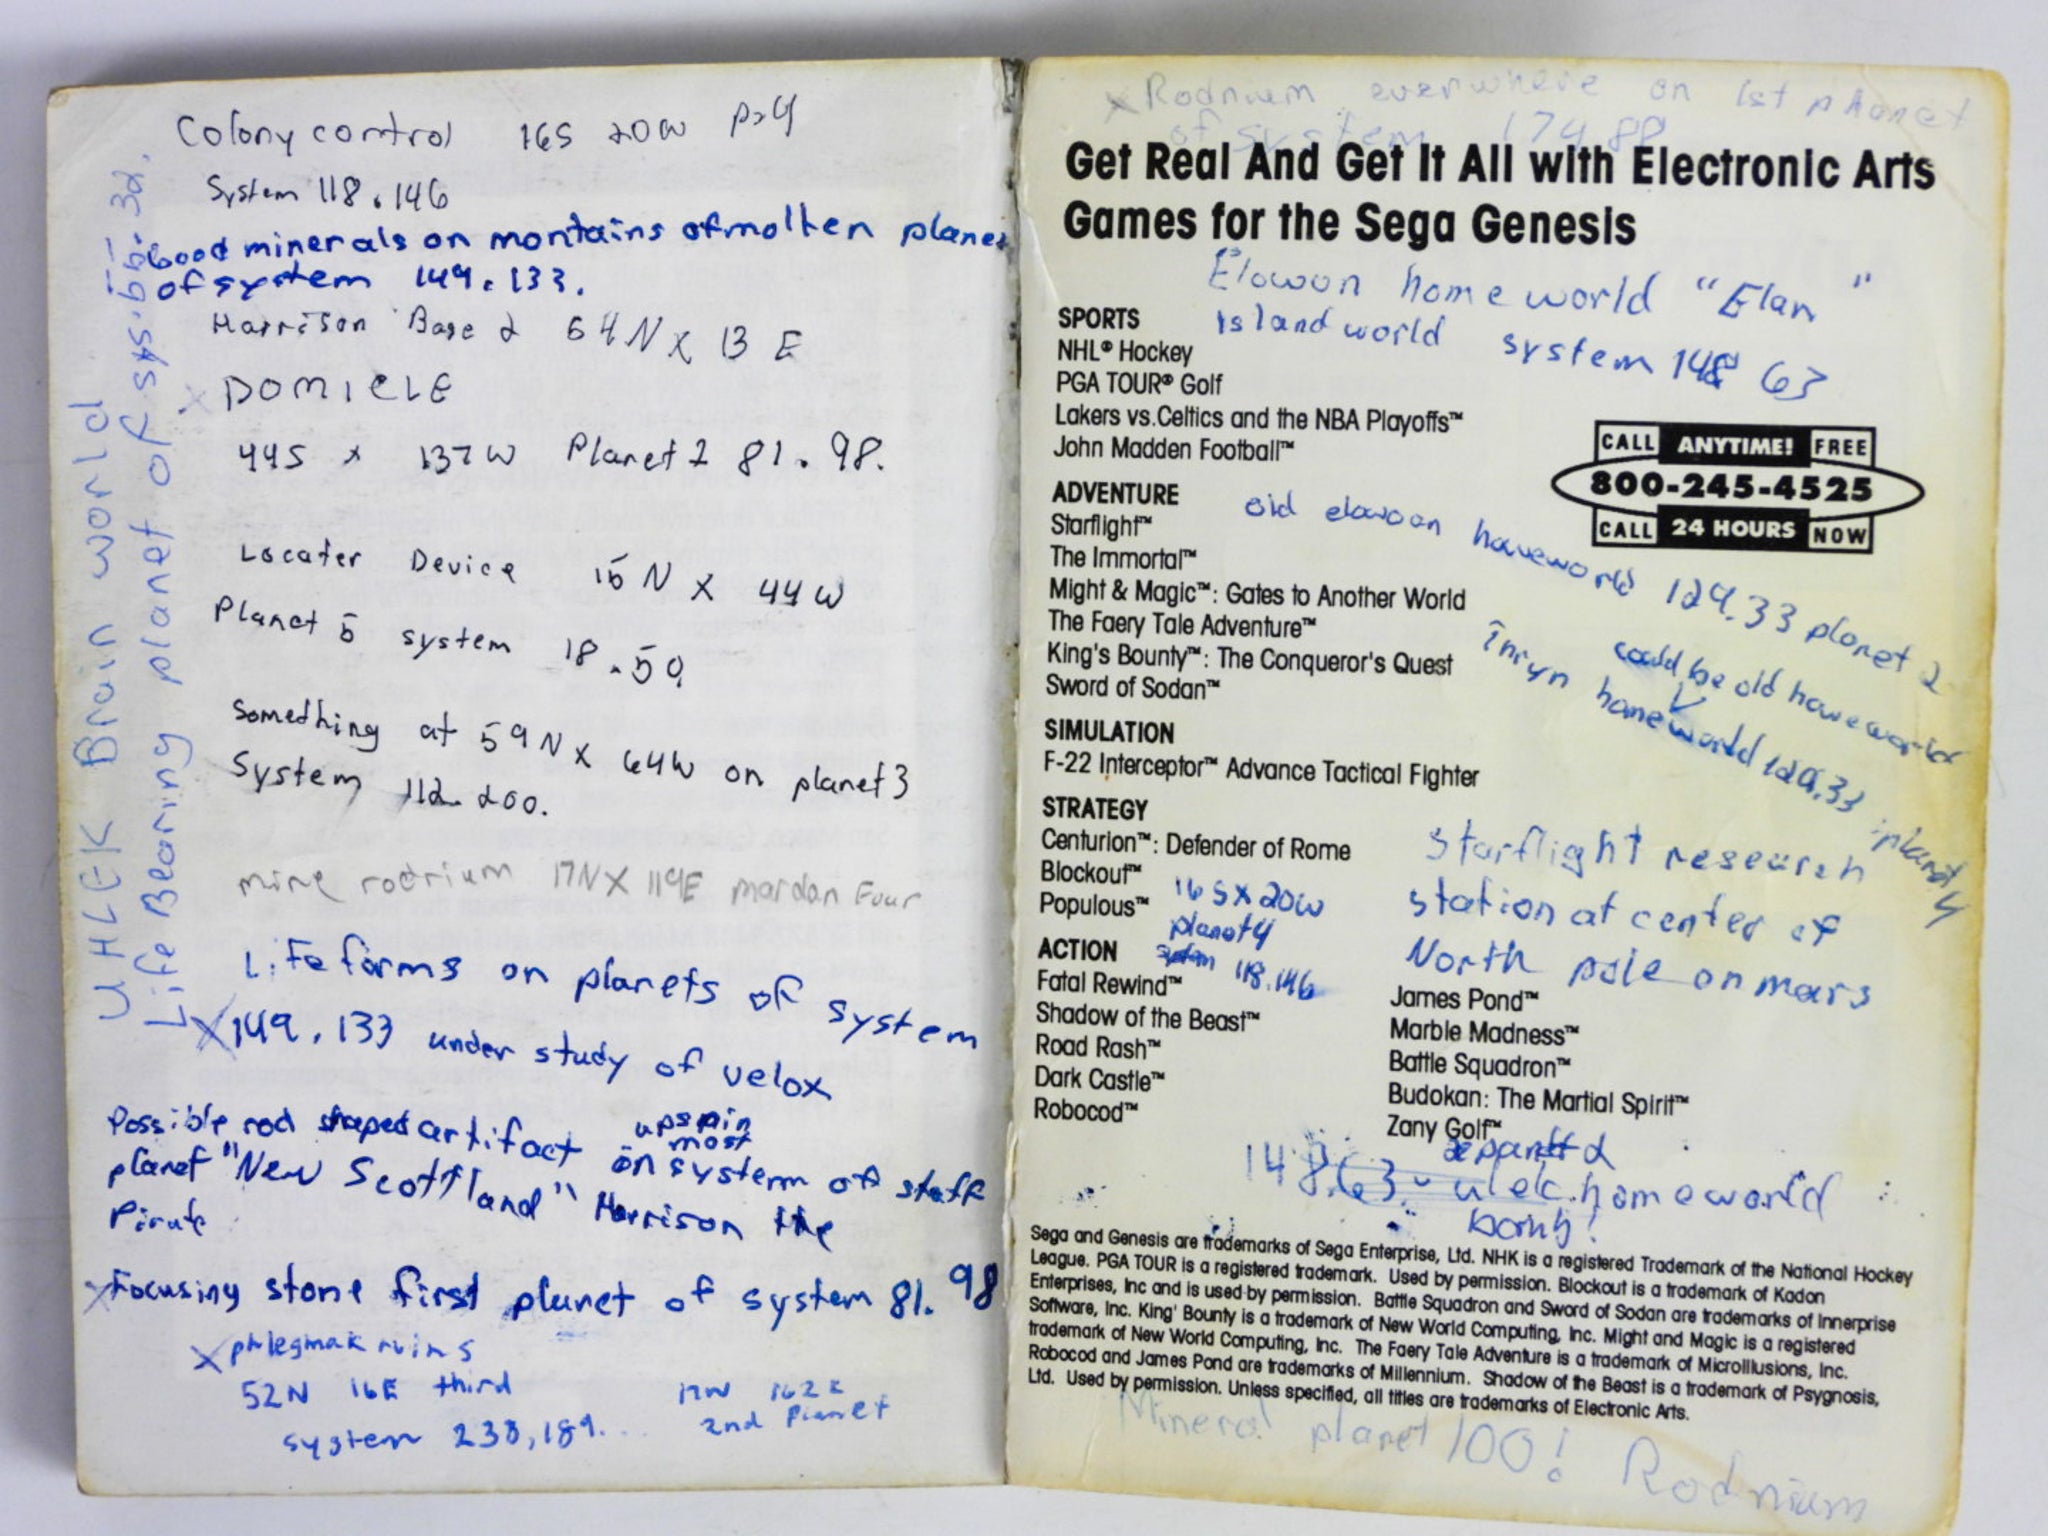 Colony control 16S 20W P>4
System 118.146
Good minerals on montains of molten planet
of system 149.133.
Harrison Base 2 64N X 13 E
DOMICLE
44S x 137W Planet 1 81.98.
Locater Device 15 N X 44W
Planet 5 system 18.50.
Something at 59N X 64W on planet 3
System 112.200.
mine rodrium 17N X 119E mardan Four
Life forms on planets of system
X149.133 under study of velox
Possible rod shaped artifact on upspin most system of staff
planet "New Scottland" Harrison the
Pirate
XFocusing stone first planet of system 81.98
X phlegmak ruins
52N 16E third
system 233,189...
17N 162E
2nd Planet
UHLEK Brain world
Life Bearing planet of sys. 55.32.
X Rodnium everwhere on 1st planet
of system 174,88
Get Real And Get It All with Electronic Arts
Games for the Sega Genesis
Elowan homeworld "Elan"
Island world system 148 63
SPORTS
NHL® Hockey
PGA TOUR® Golf
Lakers vs.Celtics and the NBA Playoffs™
John Madden Football™
CALL ANYTIME! FREE
800-245-4525
CALL 24 HOURS NOW
ADVENTURE
Starflight™
The Immortal™
Might & Magic™: Gates to Another World
The Faery Tale Adventure™
King's Bounty™: The Conqueror's Quest
Sword of Sodan™
old elowan homeworld 129.33 planet 2
could be old homeworld
Thryn homeworld 129.33 planet 4
SIMULATION
F-22 Interceptor™ Advance Tactical Fighter
STRATEGY
Centurion™: Defender of Rome
Blockout™
Populous™
16 S X 20W
planet 4
system 118.146
Starflight research
station at center of
North pole on mars
ACTION
Fatal Rewind™
Shadow of the Beast™
Road Rash™
Dark Castle™
Robocod™
James Pond™
Marble Madness™
Battle Squadron™
Budokan: The Martial Spirit™
Zany Golf™
148.63. ulek homeworld
bomb!
Sega and Genesis are trademarks of Sega Enterprise, Ltd. NHK is a registered Trademark of the National Hockey
League. PGA TOUR is a registered trademark. Used by permission. Blockout is a trademark of Kadon
Enterprises, Inc and is used by permission. Battle Squadron and Sword of Sodan are trademarks of Innerprise
Software, Inc. King' Bounty is a trademark of New World Computing, Inc. Might and Magic is a registered
trademark of New World Computing, Inc. The Faery Tale Adventure is a trademark of MicroIllusions, Inc.
Robocod and James Pond are trademarks of Millennium. Shadow of the Beast is a trademark of Psygnosis,
Ltd. Used by permission. Unless specified, all titles are trademarks of Electronic Arts.
Mineral planet 100! Rodnium